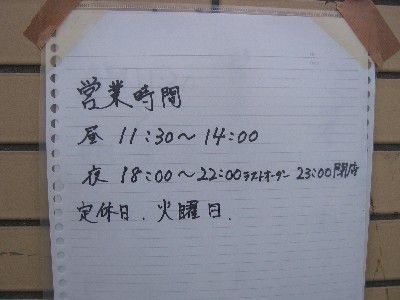 営業時間
昼 11:30～14:00
夜 18:00～22:00ラストオーダー 23:00閉店
定休日. 火曜日.